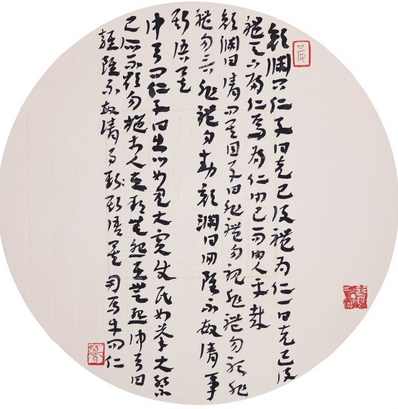 顏淵問仁子曰克己復禮為仁一日克己復
禮天下歸仁焉為仁由己而由人乎哉
顏淵曰請問其目子曰非禮勿視非禮勿聽非
禮勿言非禮勿動顏淵曰回雖不敏請事
斯語矣
仲弓問仁子曰出門如見大賓使民如承大祭
己所不欲勿施於人在邦無怨在家無怨仲弓曰
雍雖不敏請事斯語矣司馬牛問仁